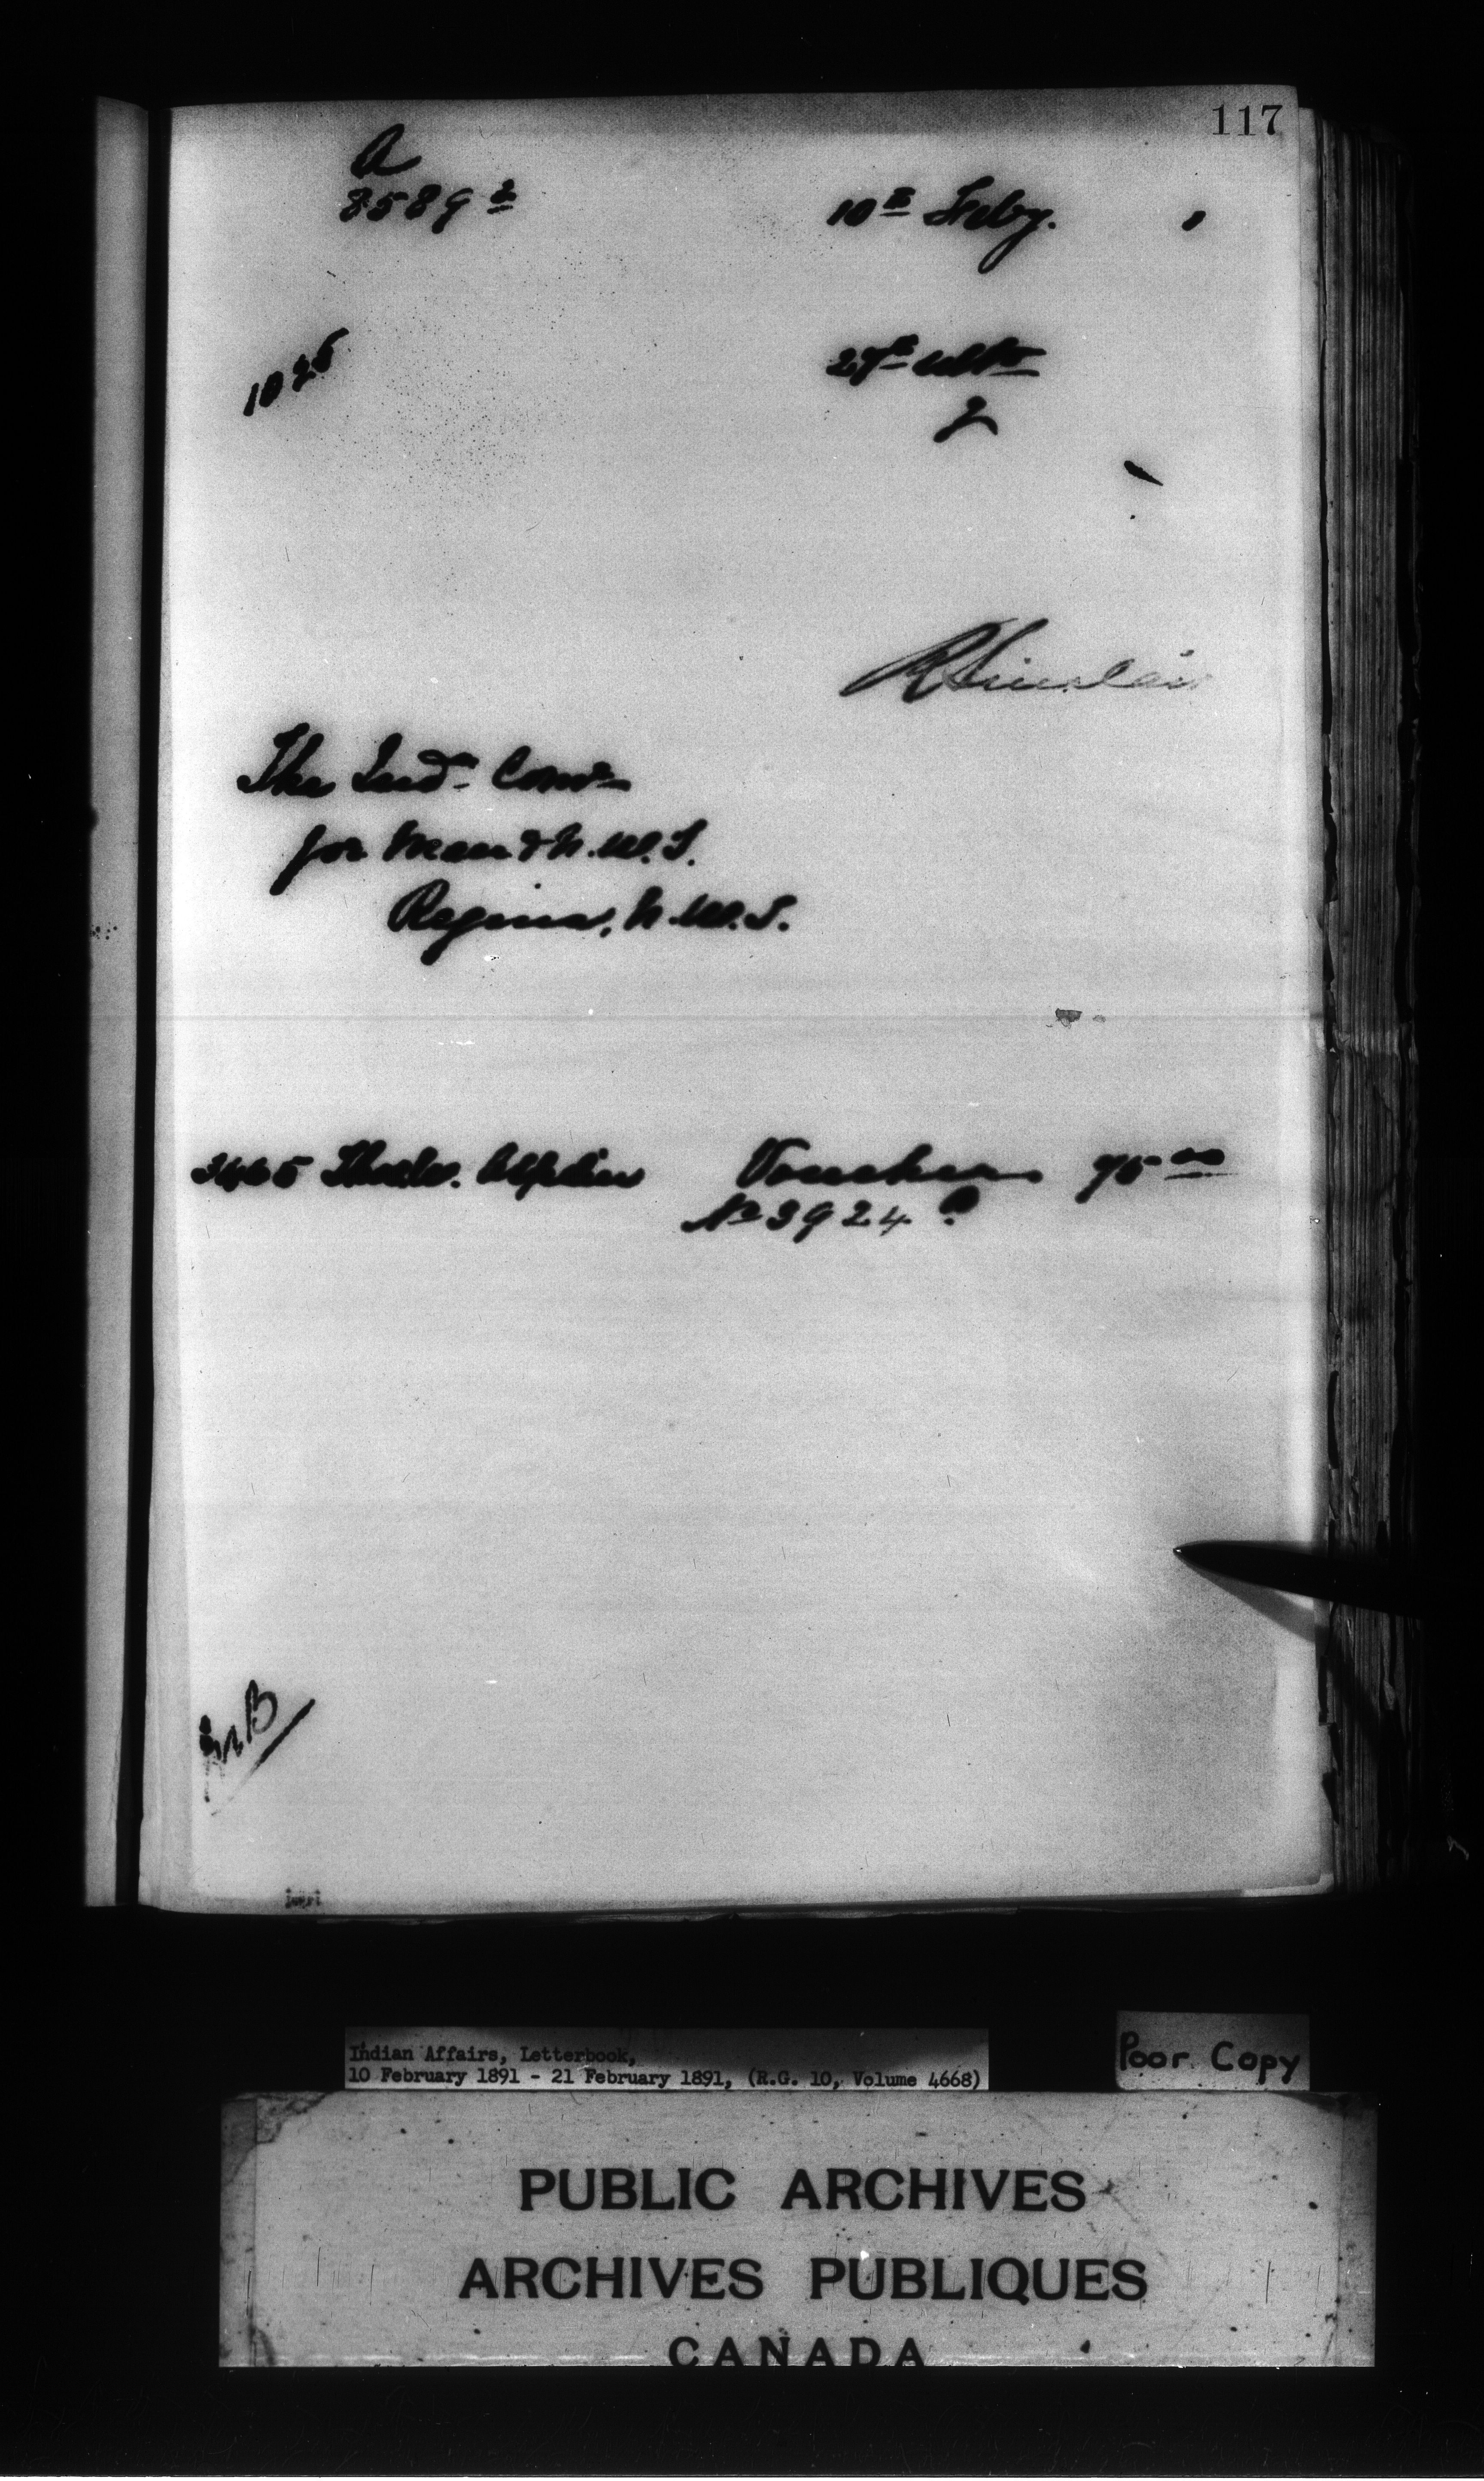 117
A
8589 2
10th Feby.
1025
27th ulto
2
R Sinclair
The Ind. Comr
for Man & N.W.T.
Regina, N.W.T.
3465 Voucher 75 00
No 3924
Indian Affairs, Letterbook,
10 February 1891 - 21 February 1891, (R.G. 10, Volume 4668)
Poor Copy
PUBLIC ARCHIVES
ARCHIVES PUBLIQUES
CANADA